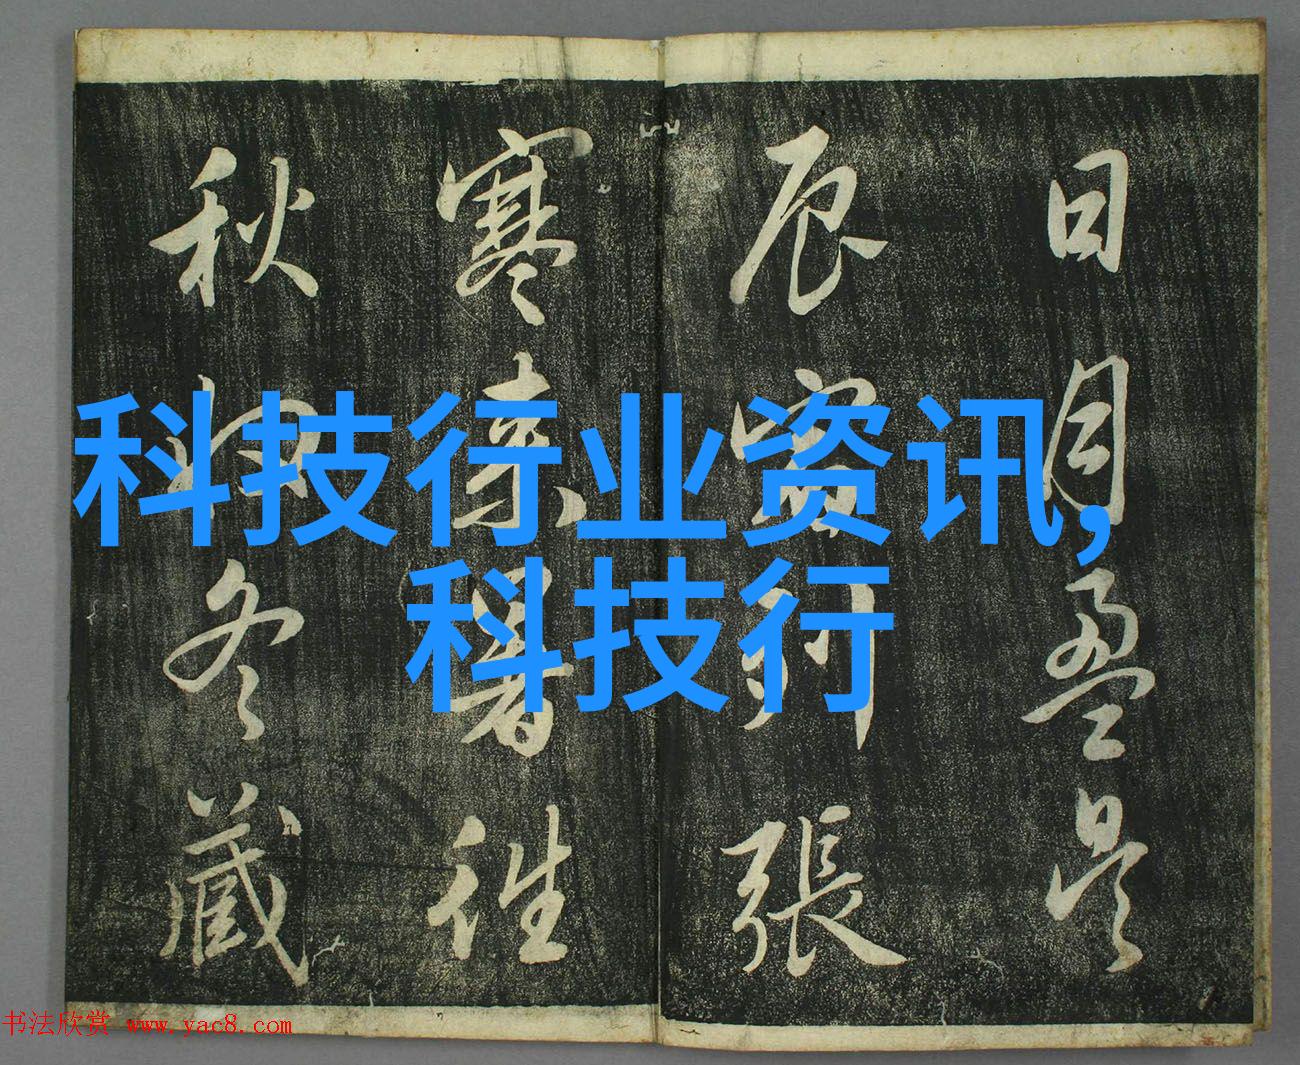 科技行业资讯,
科技行
日月盈昃
辰宿列張
寒来暑往
秋收冬藏
书法欣赏 www.yac8.com